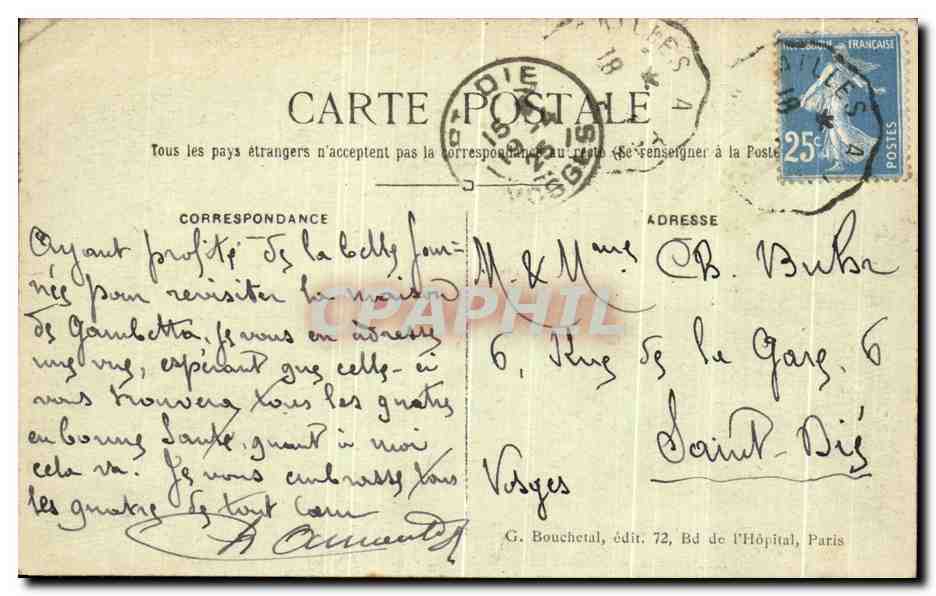 CARTE POSTALE
Tous les pays étrangers n'acceptent pas la correspondance au recto (Se renseigner à la Poste
ST DIE
VOSGES
AILLES A
18
AILLES A
18
RÉPUBLIQUE FRANÇAISE
25c
CORRESPONDANCE
Ayant profité de la belle jour-
née pour revisiter la maison
de Gambetta, je vous en adresse
une vue, espérant que celle-ci
vous trouvera tous les quatre
en bonne santé, quant à moi
cela va. Je vous embrasse tous
les quatre de tout cœur
ADRESSE
M. & Mme Ch. Buhr
6, Rue de la Gare, 6
Saint-Dié
Vosges
CPAPHIL
G. Bouchetal, édit. 72, Bd de l'Hôpital, Paris